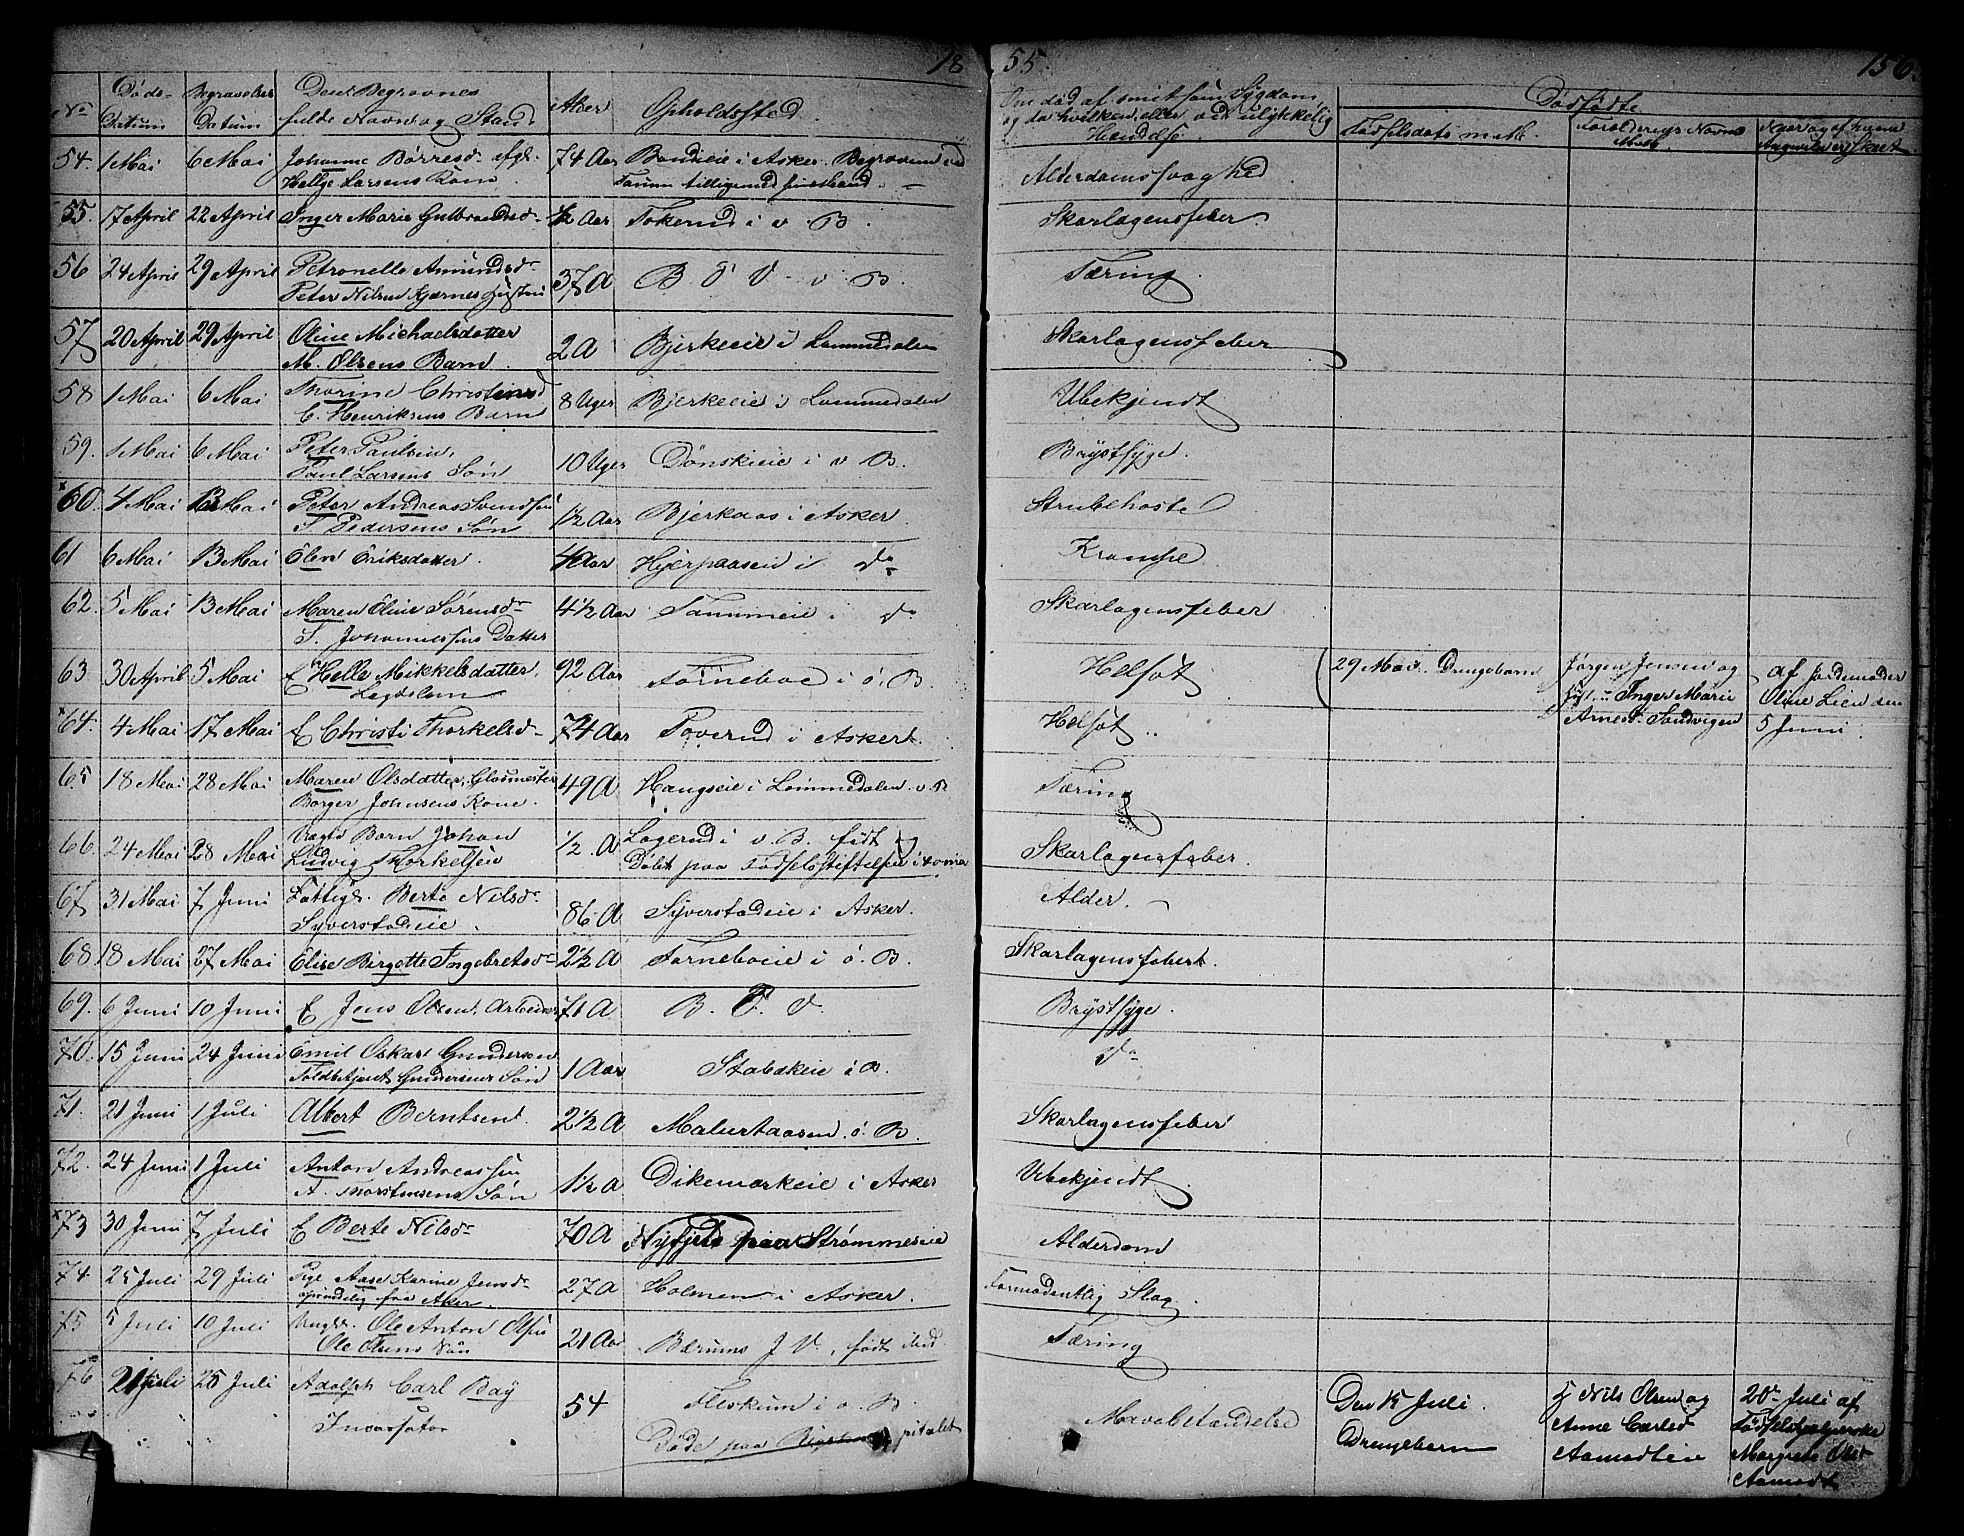 18 55.
156
No
Døds-Datum
Begravelses Datum
Den Begravnes fulde Navn og Stand
Alder
Opholdssted
Om død af smitsom Sygdom,
og da hvilken, eller ved ulykkelig
Hændelse
Dødfødte
Fødselsdatum
Forældrenes Navne
54. 1 Mai 6 Mai Johanne Børresd. 74 Aar i Asker. Begraven Alderdomssvaghed
Helge Larsens Kone
55. 17 April 22 April Inger Marie Gulbrandsd. ½ Aar Tokerud i v B. Skarlagensfeber
56 24 April 29 April Petronelle Amundsd. 37 A B V v. B. Tæring
Peter Nilsen
57 20 April 29 April Oline Michaelsdatter 2 A Bjerkeeie i Lommedalen Skarlagensfeber
M. Olsens Barn
58 1 Mai 6 Mai Thorine Christiansd 8 Uger Bjerkeeie i Lommedalen Ubekjendt
C. Henriksens Barn
59. 1 Mai 6 Mai Peter Paulsen, 10 Uger Dønskieie i v B. Brystsyge.
Paul Larsens Søn
× 60. 4 Mai 13 Mai Peter Andreas Svendsen 1½ Aar Bjerkaas i Asker Strubehoste
Pedersens Søn
61 6 Mai 13 Mai Eriksdatter 4 Aar Hjerpaasen i do Krampe
62. 5 Mai 13 Mai Maren Oline Sørensdr 4½ Aar i do Skarlagensfeber
S. Johannessens Datter
63. 30 April 5 Mai E Helle Mikkelsdatter, 92 Aar Torneboe i ø. B. Helsot 29 Mai. Drengebarn Jørgen Jensen og af Jordemoder
Legdslem Inger Marie Oline Lien den
× 64. 4 Mai 17 Mai E Christi Thorkelsdr 74 Aar Toverud i Asker. Helsot Sandvigen 5 Juni
65 18 Mai 28 Mai Maren Olsdatter, Glasmester 49 A Haugseie i Lommedalen. v. B Tæring
Borger Johnsens Kone.
66. 24 Mai 28 Mai Barn Johan ½. A Lagerud i v. B. født og Skarlagensfeber.
Ludvig Thorkelsen Døbt paa Fødselsstiftelsen i
67. 31 Mai 7 Juni Fattigl. Berte Nilsdr 86 A Syverstadeie i Asker. Alder.
Syverstadeie.
68 18 Mai 27 Mai Elise Birgette Ingebretsdr 2½ A Torneboeie i ø. B. Skarlagensfeber.
69. 6 Juni 10 Juni E Jens Olsen, Arbeider 71 A B. V. Brystsyge.
70. 15 Juni 24 Juni Emil Oskar Gundersen 1 Aar Stabækeie i B. do
Toldbetjent Gundersens Søn
71. 21 Juni 1 Juli Albert Berntsen 2½ A ø. B. Skarlagensfeber
72. 24 Juni 1 Juli Anton Andreassen 1½ A Dikemarkeie i Asker Ubekjendt
A. Thorstensens Søn
× 73 30 Juni 7 Juli E Berte Nilsdr 70 A paa Strømmeseie Alderdom
74. 25 Juli 29 Juli Pige Aase Karine Jensdr 27 A Holmen i Asker. Formodentlig Slag.
oprindelig fra Aker
75. 5 Juli 10 Juli Ungk. Ole Anton Olsen 21 Aar Bærums J V., født ibid Tæring
Ole Olsens Søn
76 21 Juli 25 Juli Adolph Carl Bay 54 Fleskum i v. B. Den 15 Juli. Nils Olsen og 20de Juli af
Døde paa Drengebarn Anne Carlsd
Margrete